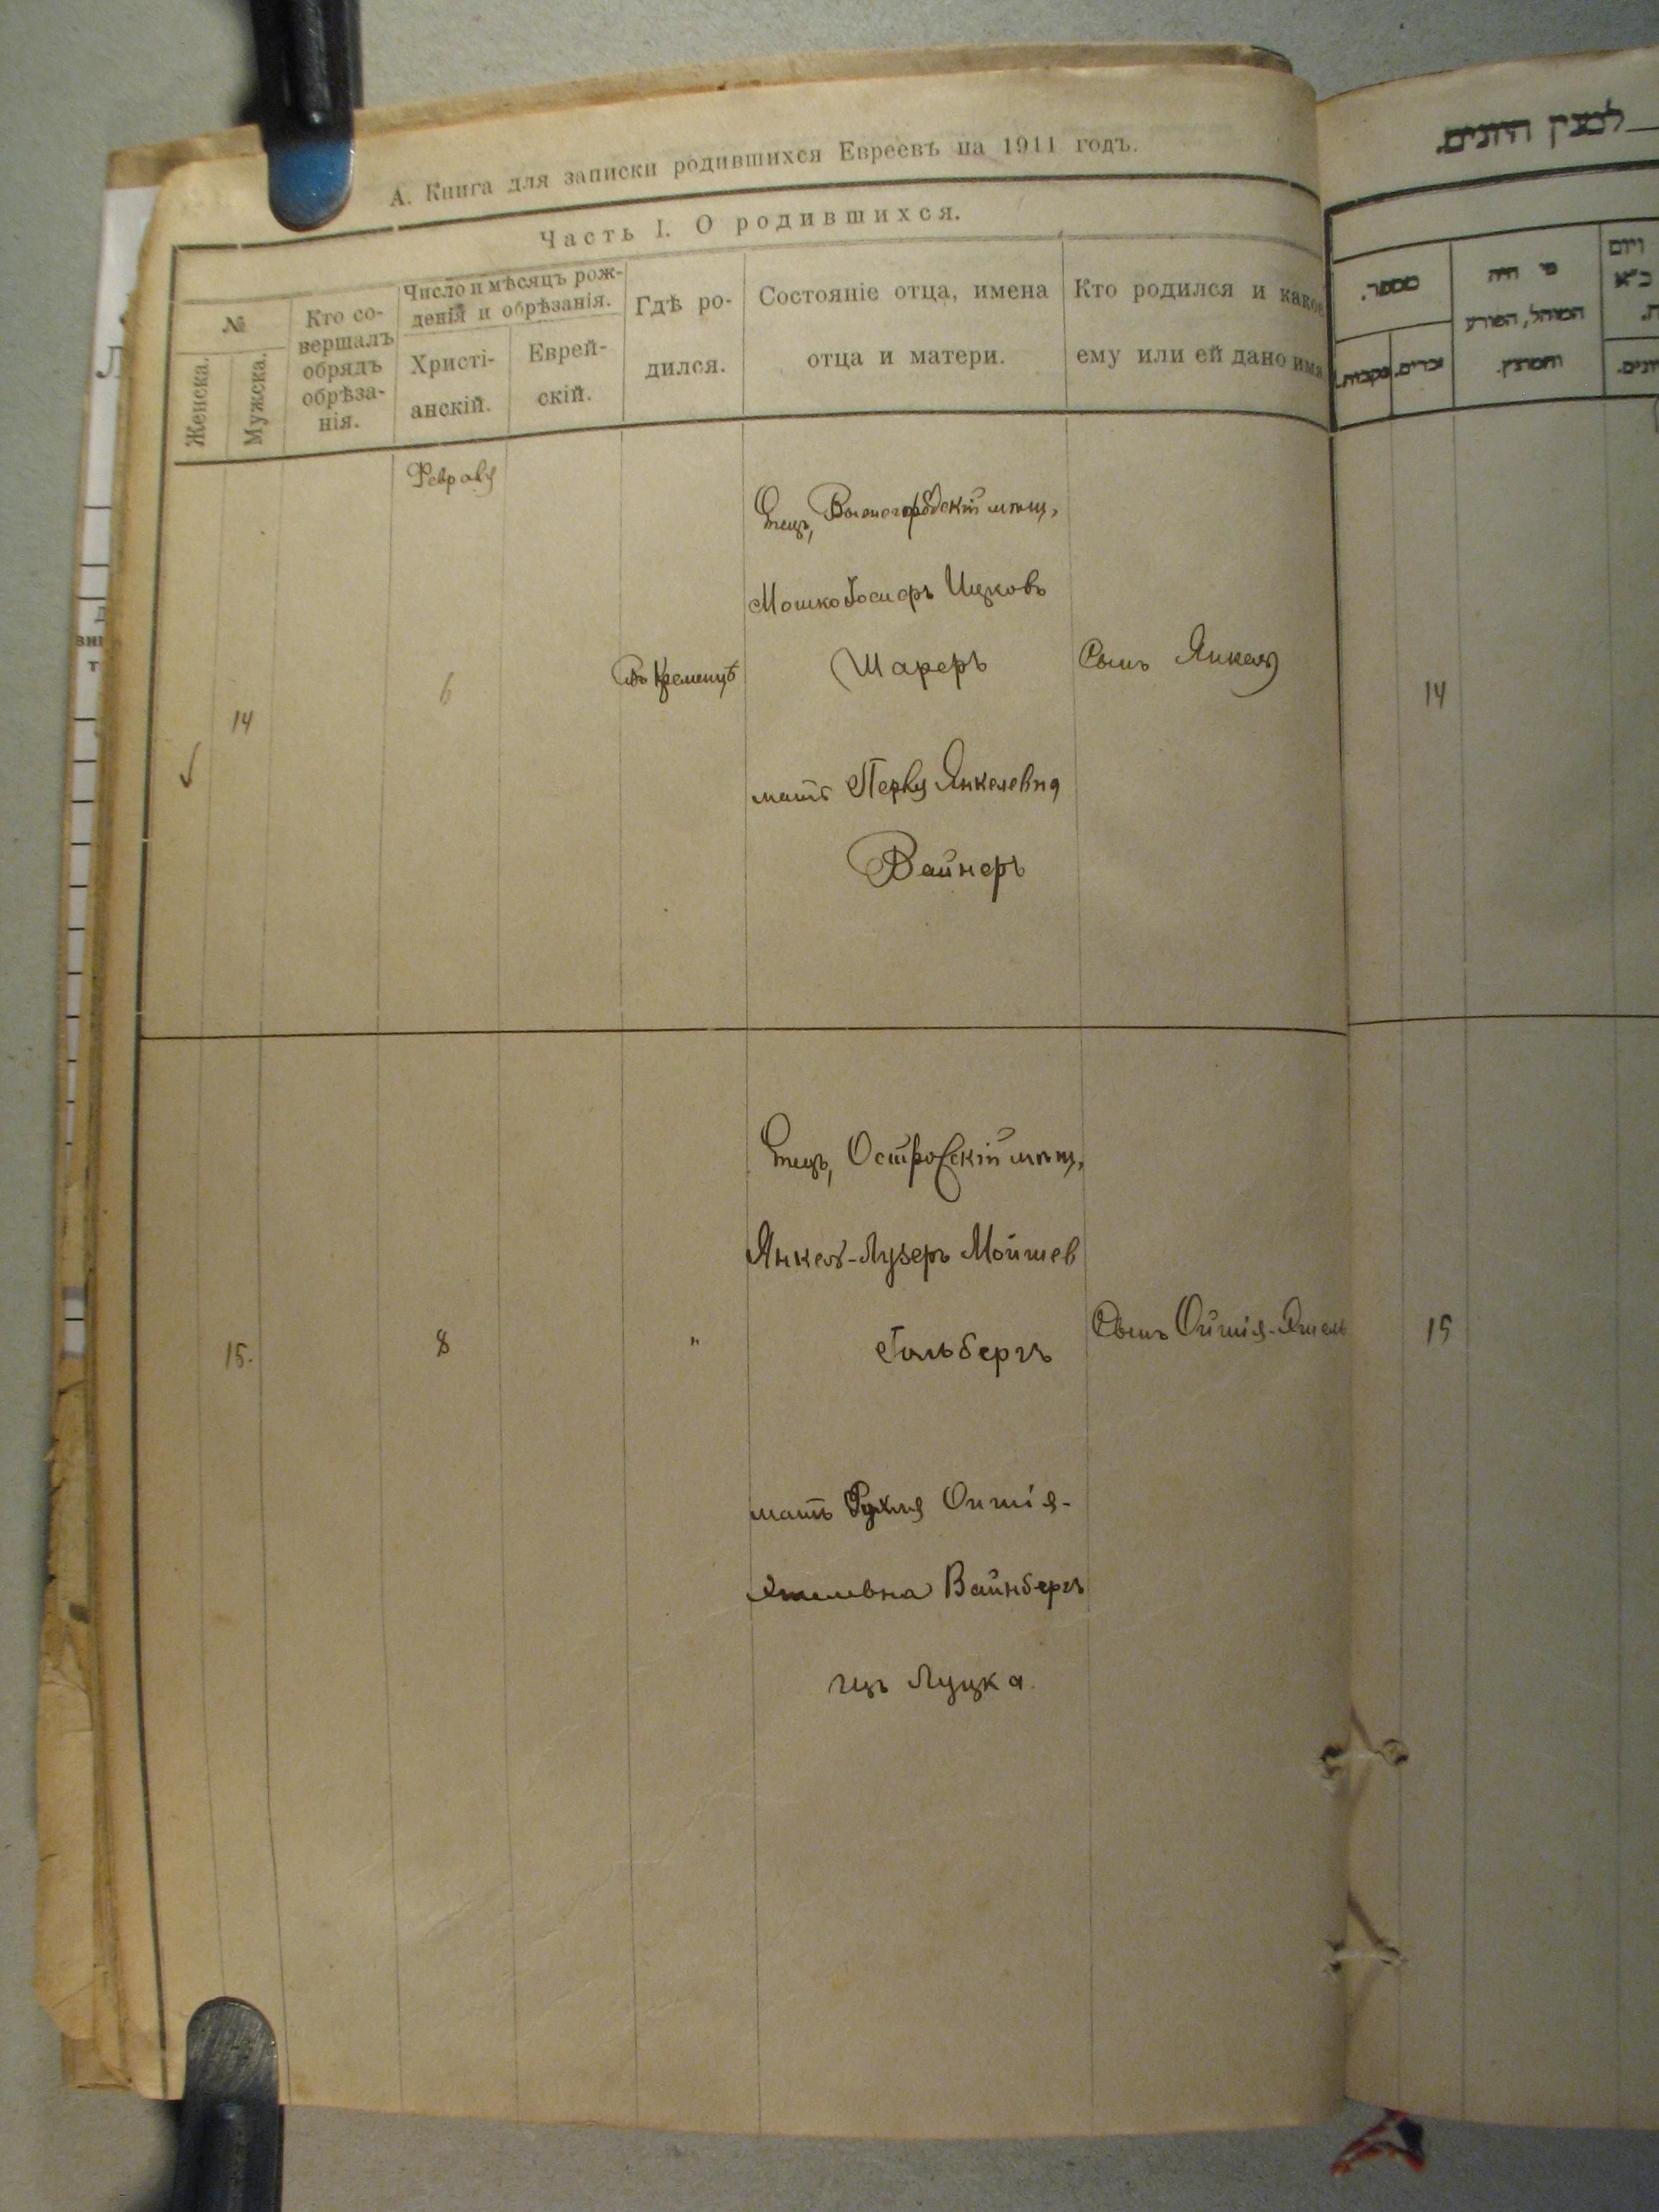 А. Книга для записки родившихся Евреевъ на 1911 годъ.
Часть I. О родившихся.
№
Женска.
Мужска.
Кто со-
вершалъ
обрядъ
обрѣза-
нія.
Число и мѣсяцъ рож-
денія и обрѣзанія.
Христі-
анскій.
Еврей-
скій.
Гдѣ ро-
дился.
Состояніе отца, имена
отца и матери.
Кто родился и какое
ему или ей дано имя
Февраля
14
6
Въ Кременцѣ
Отецъ, мѣщ.
Мошко Іосифъ Ицковъ
Шареръ
мать Перля Янкелевна
Вайнеръ
Сынъ Янкель
15.
8
"
Отецъ, Острогскій мѣщ,
Янкель-Лузеръ Мойшев
Гольбергъ
мать Рухля
Вайнбергъ
изъ Луцка.
Сынъ
לבצין היונים.
מספר.
נקבות.
זכרים.
מי היה
המוהל, הפורע
והמוצץ.
ויום
14
15